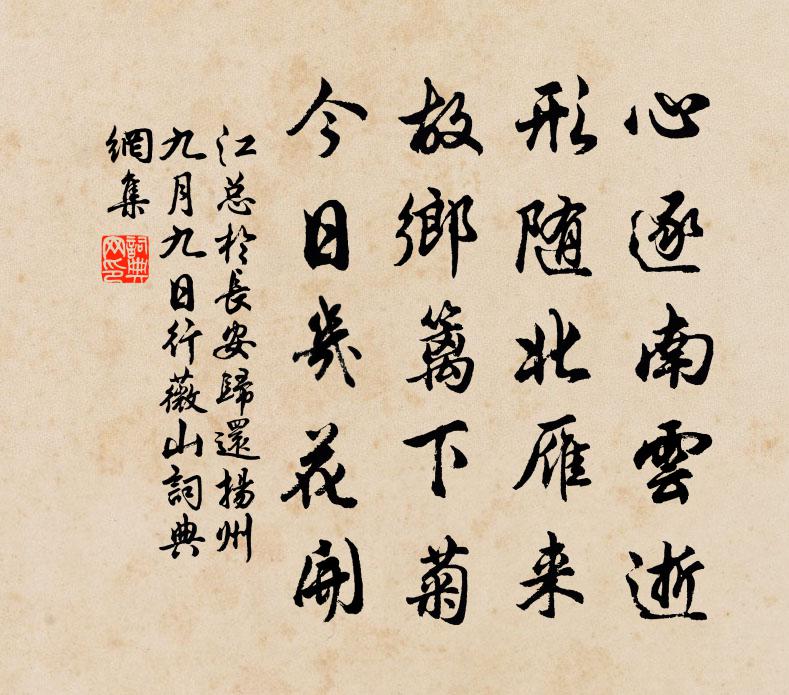 心逐南雲逝
形随北雁来
故鄉篱下菊
今日幾花開
江总於長安歸還揚州
九月九日行薇山詞典
網集
詞典
网印